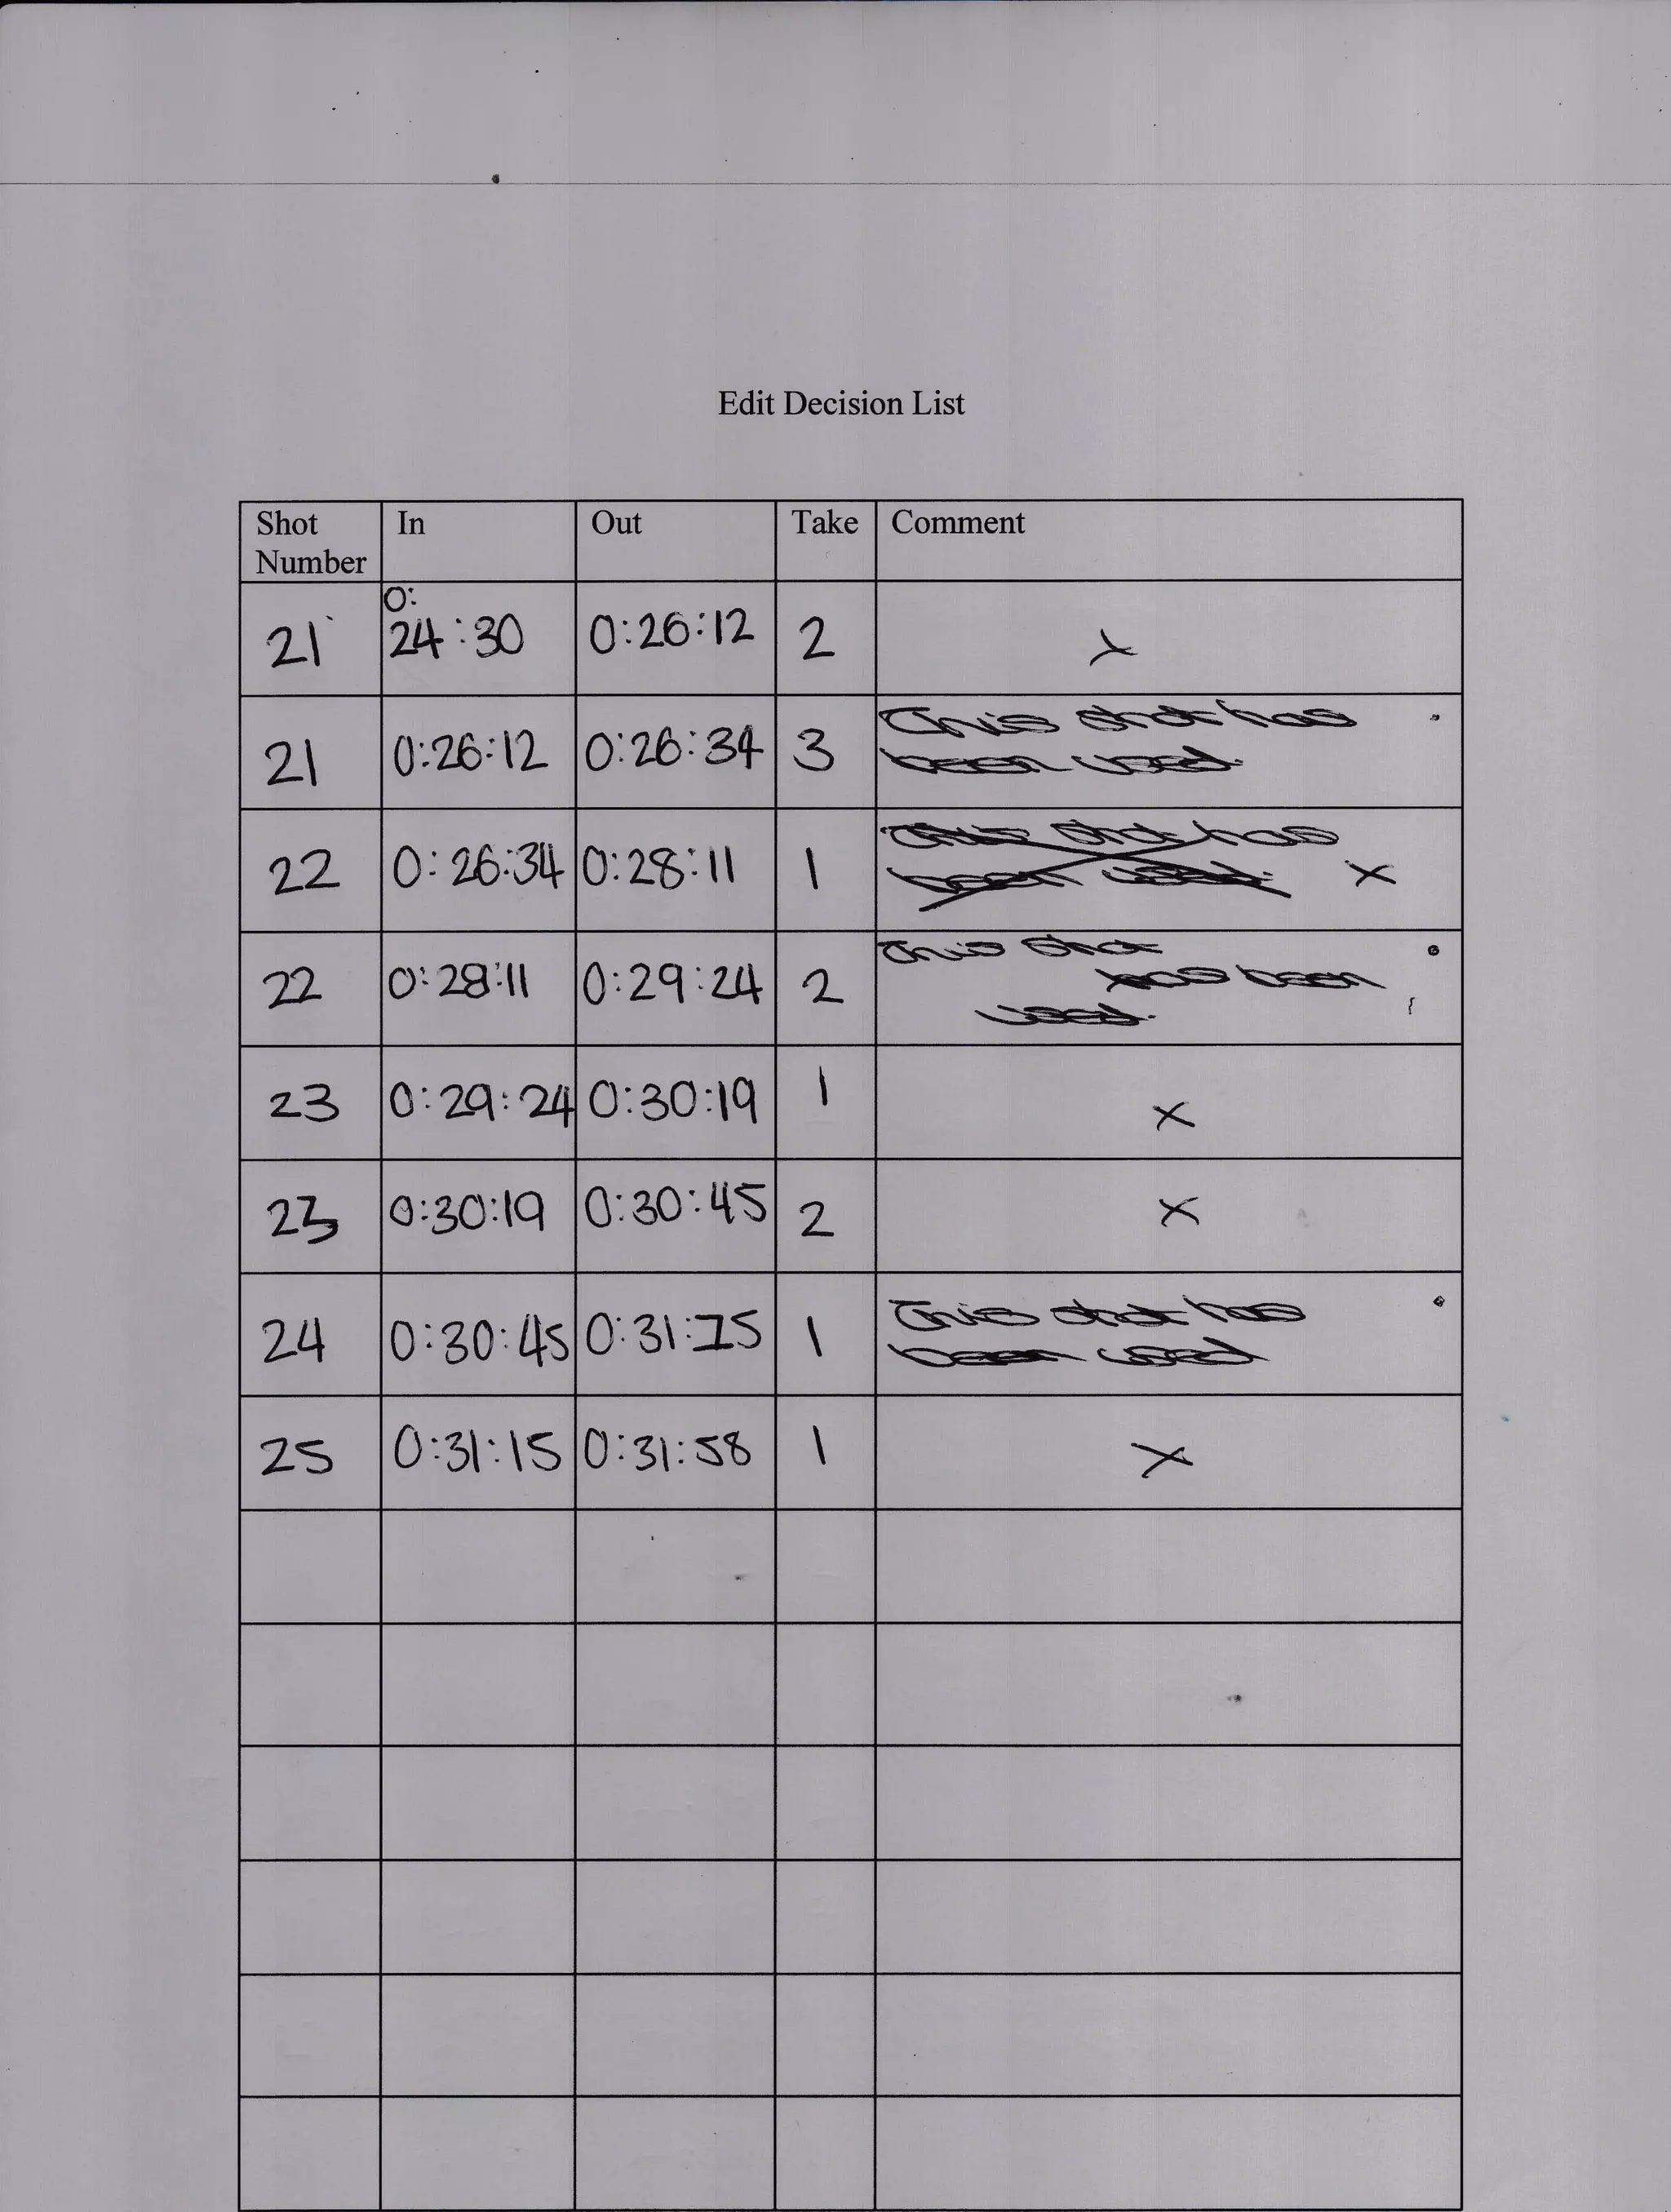 Edit Decision List
Shot Number In Out Take Comment
21 0:24:30 0:26:12 2 x
21 0:26:12 0:26:34 3 This shot has
been used.
22 0:26:34 0:28:11 1 This shot has
been used. x
22 0:28:11 0:29:24 2 This shot
has been
used.
23 0:29:24 0:30:19 1 x
23 0:30:19 0:30:45 2 x
24 0:30:45 0:31:15 1 This shot has
been used
25 0:31:15 0:31:58 1 x